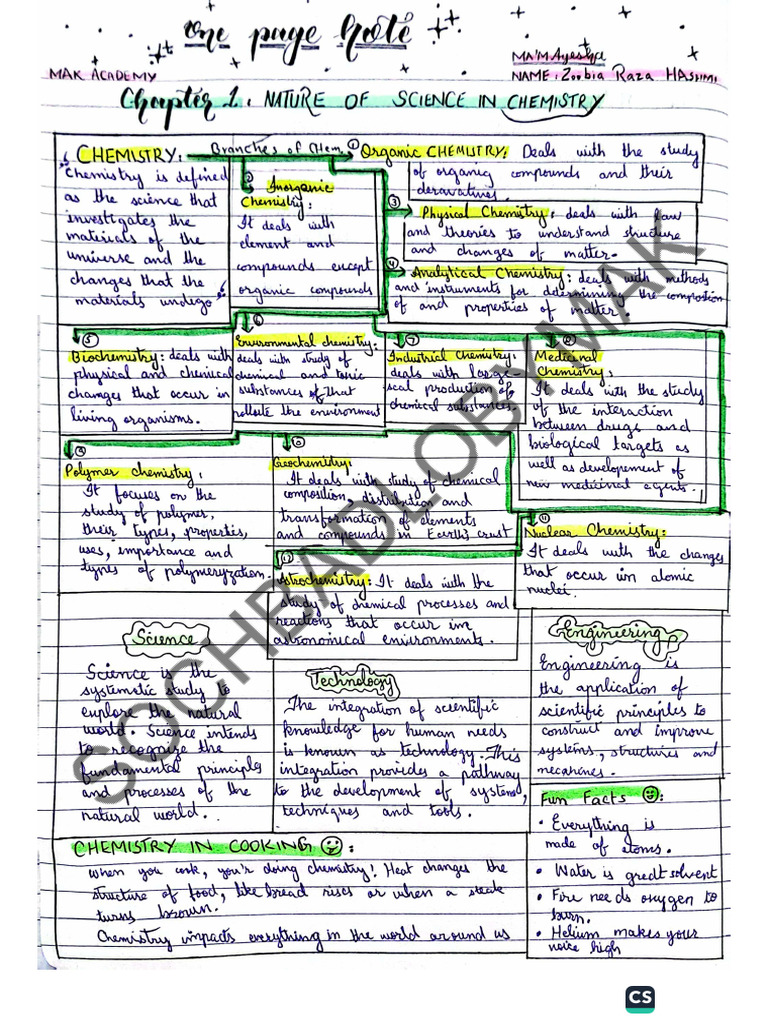 one page note
MA'M Ayesha
MAK ACADEMY
NAME: Zoobia Raza HASHMI
Chapter 1: NATURE OF SCIENCE IN CHEMISTRY
CHEMISTRY:
Chemistry is defined
as the science that
investigates the
materials of the
universe and the
changes that the
materials undergo.
Branches of Chem.
① Organic CHEMISTRY: Deals with the study
of organic compounds and their
deravatives.
② Inorganic
Chemistry:
It deals with
element and
compounds except
organic compounds
③ Physical Chemistry: deals with law
and theories to understand structure
and changes of matter.
④ Analytical Chemistry: deals with methods
and instruments for determining the composition
of and properties of matter.
⑤
Biochemistry: deals with
physical and chemical
changes that occur in
living organisms.
⑥
Environmental chemistry:
deals with study of
chemical and toxic
substances of that
pollute the environment
⑦
Industrial Chemistry:
deals with large
scal production of
chemical substances.
⑧
Medicinal
Chemistry:
It deals with the study
of the interaction
between drugs and
biological targets as
well as development of
new medicinal agents.
⑨
Polymer chemistry:
It focuses on the
study of polymer,
their types, properties,
uses, importance and
types of polymeryzation.
Geochemistry:
It deals with study of chemical
composition, distribution and
transformation of elements
and compounds in Earth's crust
⑪
Nuclear Chemistry:
It deals with the changes
that occur in atomic
nuclei.
Astrochemistry: It deals with the
study of chemical processes and
reactions that occur in
astronomical environments.
Science
Science is the
systematic study to
explore the natural
world. Science intends
to recognize the
fundamental principles
and processes of the
natural world.
Technology
The integration of scientific
knowledge for human needs
is known as technology. This
integration provides a pathway
to the development of systems,
techniques and tools.
Engineering
Engineering is
the application of
scientific principles to
construct and improve
systems, structures and
mecahines.
Fun Facts ☺:
• Everything is
made of atoms.
• Water is great solvent
• Fire needs oxygen to
burn.
• Helium makes your
voice high
CHEMISTRY IN COOKING ☺:
when you cook, you're doing chemistry! Heat changes the
structure of food, like bread rises or when a steak
turns brown.
Chemistry impacts everything in the world around us
SOCHBADLOBYMAK
CS